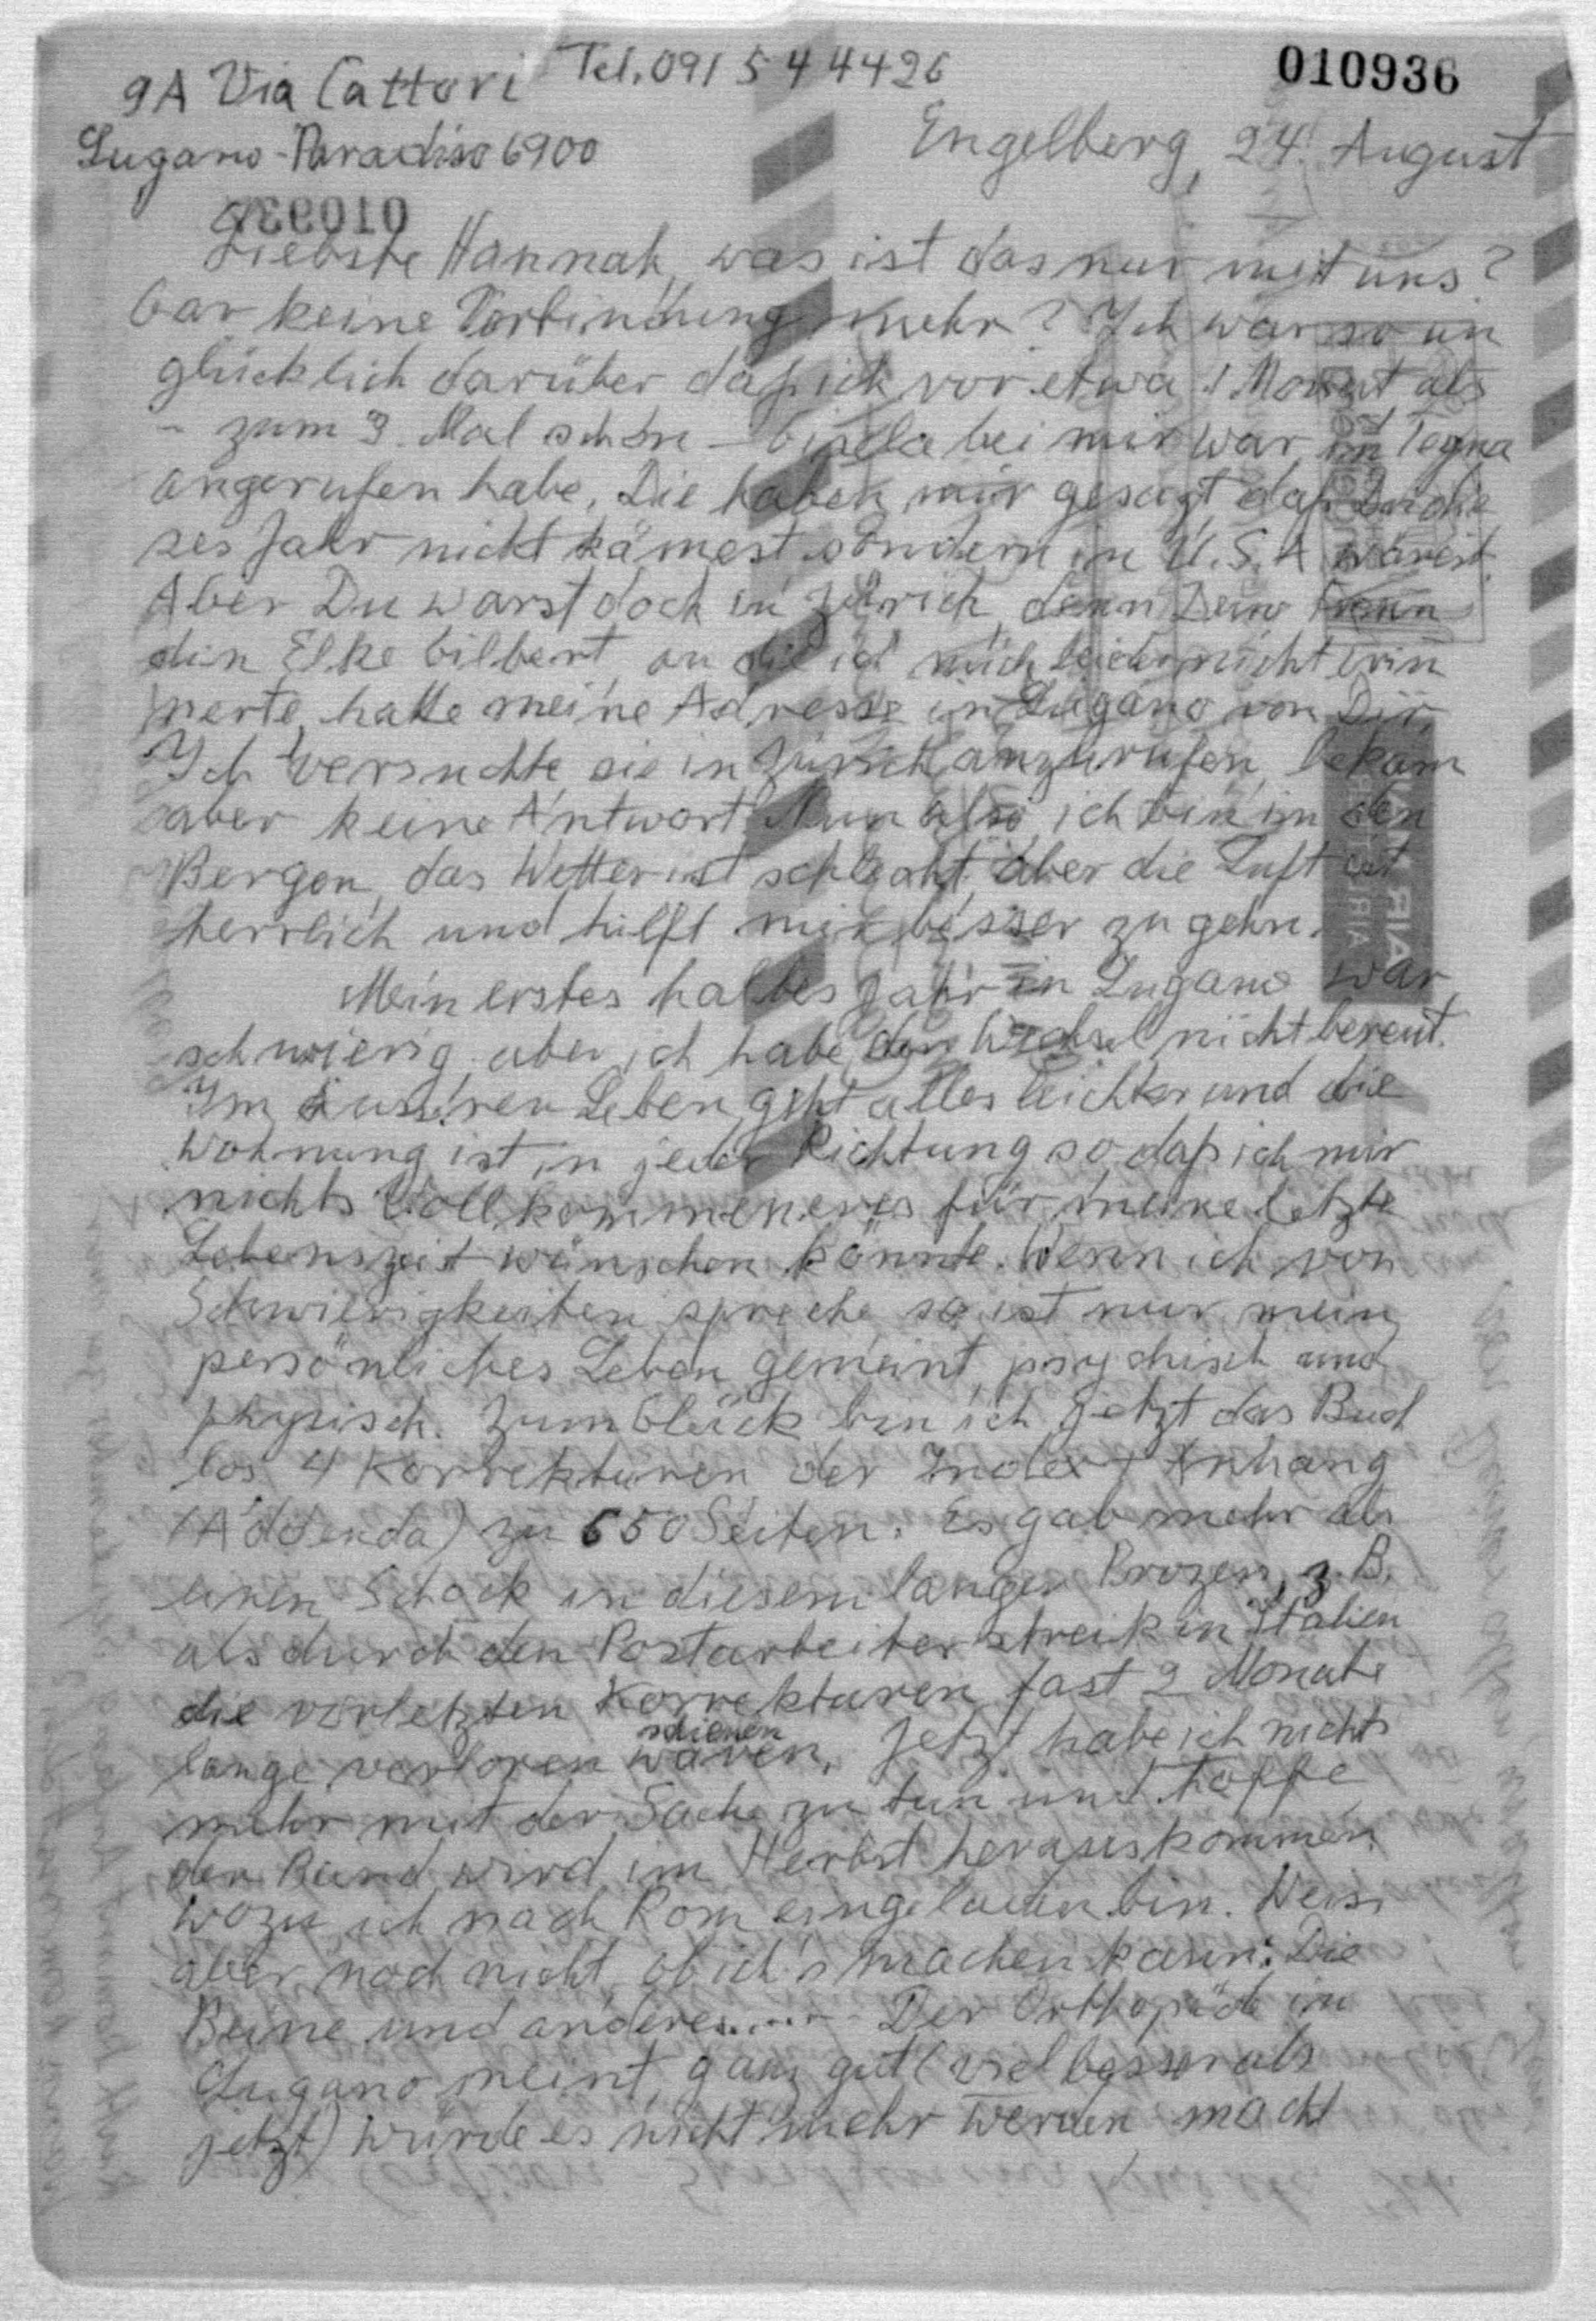 9A Via Cattori Tel. 091 5 4 4 4 26
010936
Lugano-Paradiso 6900
Engelberg, 24. August
Liebste Hannah, was ist das nur mit uns?
Gar keine Verbindung mehr? Ich war so un
glücklich darüber daß ich vor etwa 1 Monat als
- zum 3. Mal schon - Gisela bei mir war, in Tegna
angerufen habe. Die haben mir gesagt daß Du die
ses Jahr nicht kämest sondern in U.S.A wärest.
Aber Du warst doch in Zürich, denn Deine Freun
din Elke Gilbert, an die ich mich leider nicht erin
nerte, hatte meine Adresse in Lugano von Dir.
Ich versuchte sie in Zürich anzurufen, bekam
aber keine Antwort. Nun also, ich bin in den
Bergen, das Wetter ist schlecht, aber die Luft ist
herrlich und hilft mir besser zu gehn.
Mein erstes halbes Jahr in Lugano war
schwierig, aber ich habe den Wechsel nicht bereut.
Im äusseren Leben geht alles leichter und die
Wohnung ist in jeder Richtung so daß ich mir
nichts Vollkommeneres für meine letzte
Lebenszeit wünschen könnte. Wenn ich von
Schwierigkeiten spreche so ist nur mein
persönliches Leben gemeint, psychisch und
physisch. Zum Glück bin ich jetzt das Buch
los, 4 Korrekturen der Index + Anhang
(Addenda) zu 650 Seiten. Es gab mehr als
einen Schock in diesem langen Prozess, z.B.
als durch den Postarbeiterstreik in Italien
die vorletzten Korrekturen fast 2 Monate
schienen
lange verloren waren. Jetzt habe ich nichts
mehr mit der Sache zu tun und hoffe
der Band wird im Herbst herauskommen
wozu ich nach Rom eingeladen bin. Weiss
aber noch nicht, ob ich's machen kann: Die
Beine und anderes..... Der Orthopäde in
Lugano meint, ganz gut (viel besser als
jetzt) würde es nicht mehr werden, macht